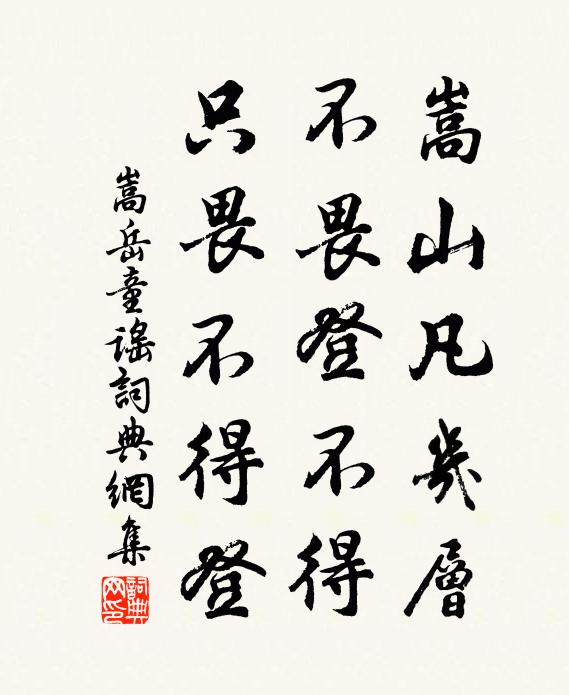 嵩山凡幾層
不畏登不得
只畏不得登
嵩岳童謠詞典網集
詞典網印